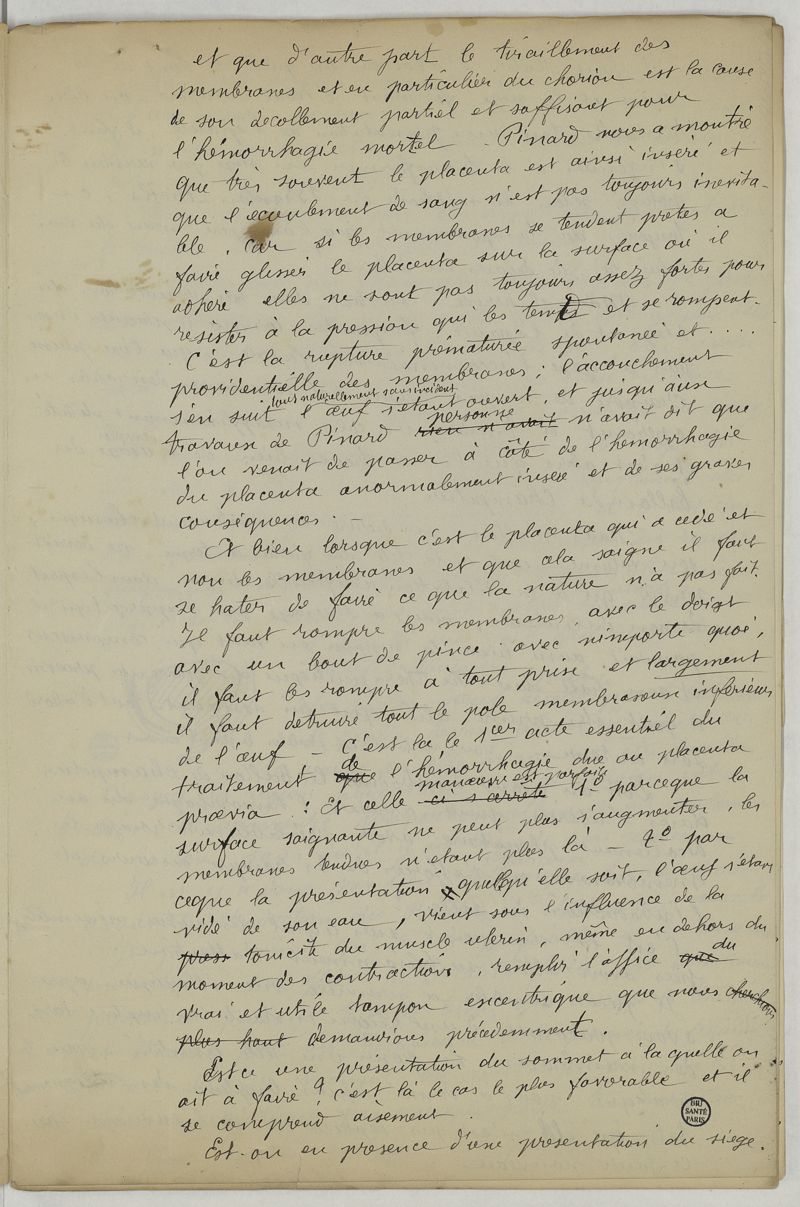 et que d'autre part le tiraillement des
membranes et en particulier du chorion est la cause
de son decollement partiel et suffisant pour
l'hémorrhagie mortel. Pinard nous a montré
que très souvent le placenta est ainsi inséré et
que l'écoulement de sang n'est pas toujours inevita-
ble, car si les membranes se tendent pretes a
faire glisser le placenta sur la surface où il
adhere elles ne sont pas toujours assez fortes pour
resister à la pression qui les tend et se rompent.
C'est la rupture prématurée spontanée et ....
providentielle des membranes; l'accouchement
tout naturellement sans incident
s'en suit l'œuf s'etant ouvert, et jusqu'aux
personne
travaux de Pinard rien n'avait n'avait dit que
l'on venait de passer à côté de l'hemorrhagie
du placenta anormalement inséré et de ses graves
conséquences. —
Et bien lorsque c'est le placenta qui a cedé et
non les membranes et que cela saigne il faut
se hater de faire ce que la nature n'a pas fait.
Il faut rompre les membranes, avec le doigt
avec un bout de pince avec nimporte quoi,
il faut les rompre à tout prise et largement
il faut detruire tout le pole membraneux inferieur
de l'œuf — C'est la le 1er acte essentiel du
de
traitement que l'hémorrhagie due au placenta
manœuvre est parfaite
prævia : Et celle ci s'arrête 1º parceque la
surface saignante ne peut plus s'augmenter, les
membranes tendues n'etant plus là — 2º par
ceque la présentation quelqu'elle soit, l'œuf s'étant
vidé de son eau, vient sous l'influence de la
press tonicité du muscle uterin, même en dehors du
moment des contractions, remplir l'office que du
vrai et utile tampon excentrique que nous cherchions
plus haut demandions précédemment.
Est ce une présentation du sommet à la quelle on
ait à faire? c'est là le cas le plus favorable et il
se comprend aisement.
Est-on en presence d'une presentation du siege.
BIU
SANTÉ
PARIS